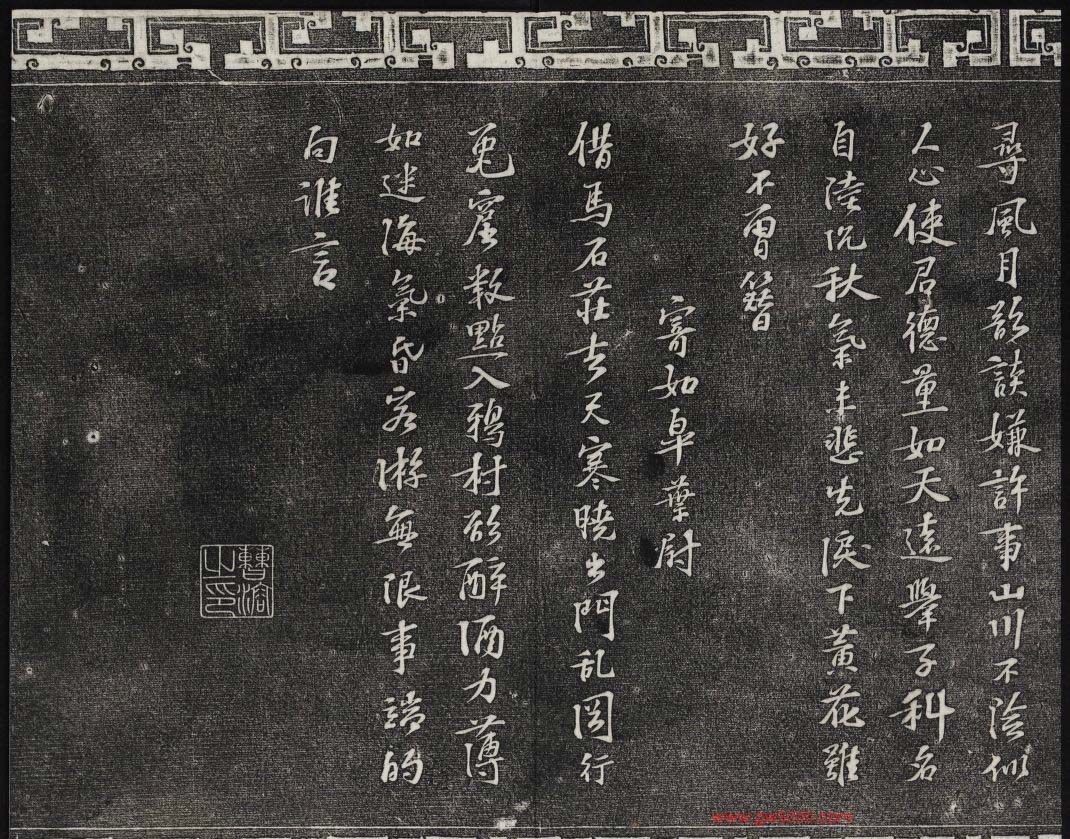 尋風月欲談嫌許事山川不險似
人心使君德量如天遠舉子科名
自陸沉秋氣未悲先淚下黃花雖
好不曾簪
寄如皋葉尉
借馬石莊去天寒曉出門乱岡行
兎窟數點入鴉村欲醉酒力薄
如迷海氣昏客游無限事端的
向誰言
曹溶之印
www.gw5000.com